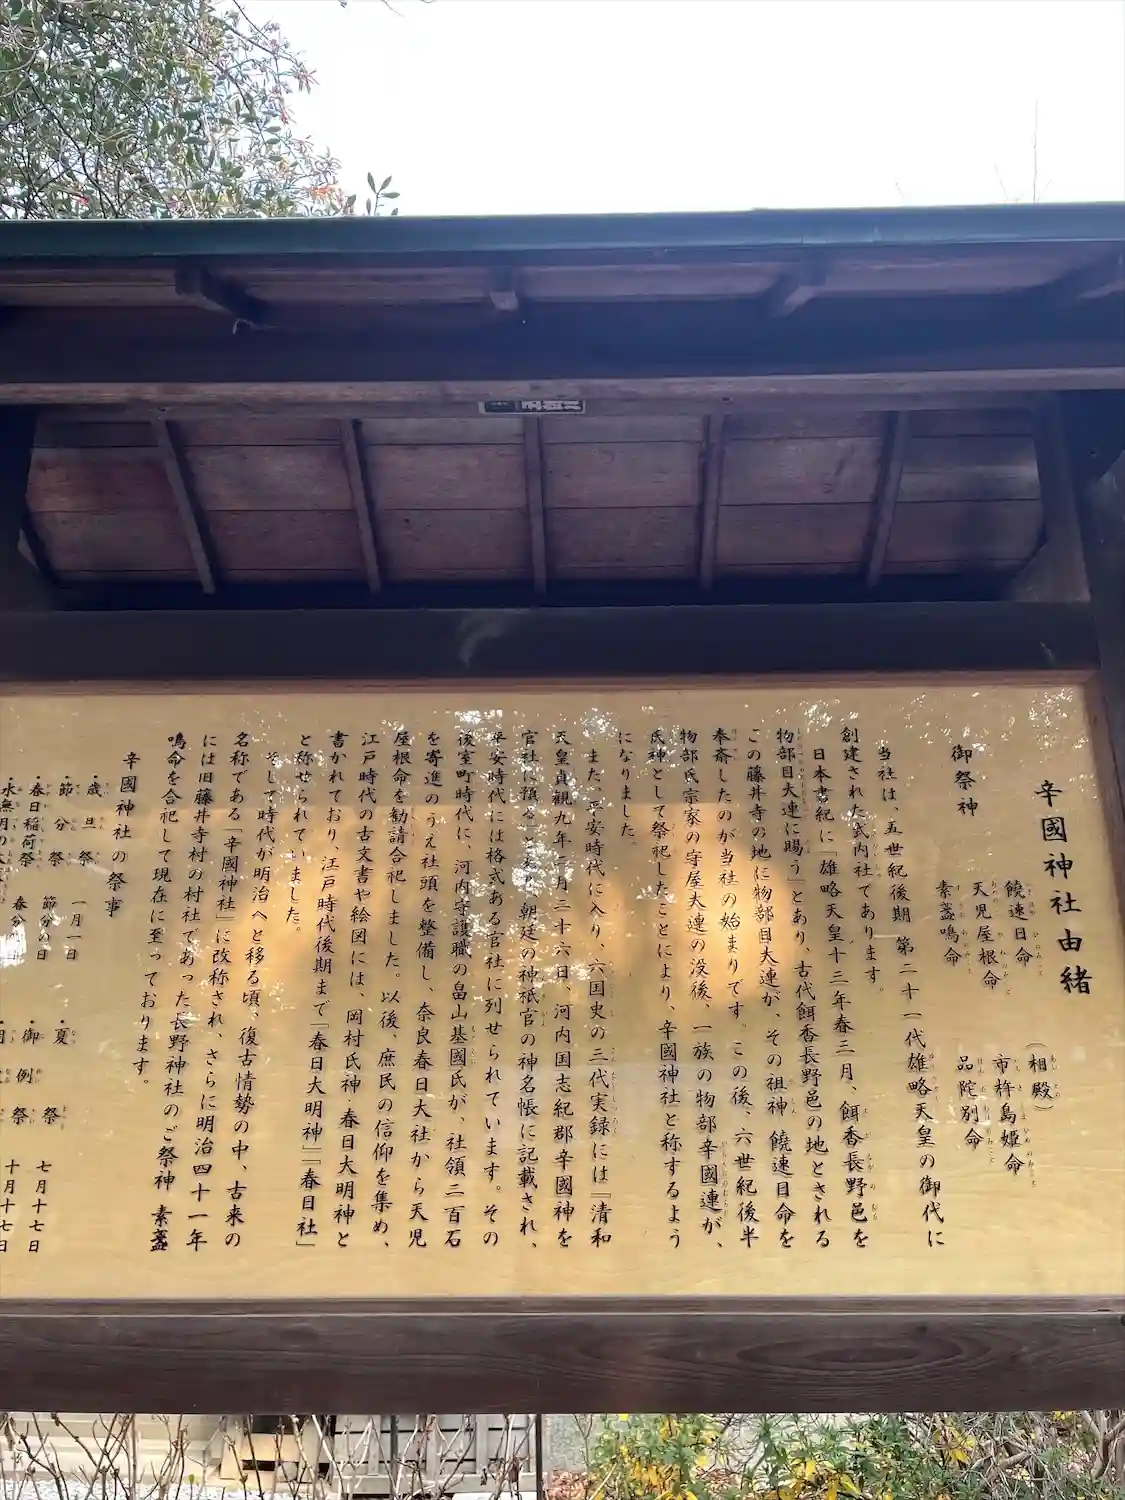 辛國神社由緒
御祭神
饒速日命
天児屋根命
素盞嗚命
(相殿)
市杵島姫命
品陀別命
当社は、五世紀後期 第二十一代雄略天皇の御代に
創建された式内社であります。
日本書紀に「雄略天皇十三年春三月、餌香長野邑を
物部目大連に賜う」とあり、古代餌香長野邑の地とされる
この藤井寺の地に物部目大連が、その祖神 饒速日命を
奉斎したのが当社の始まりです。この後、六世紀後半
物部氏宗家の守屋大連の没後、一族の物部辛國連が、
氏神として祭祀したことにより、辛國神社と称するよう
になりました。
また、平安時代に入り、六国史の三代実録には「清和
天皇貞観九年二月二十六日、河内国志紀郡辛國神を
官社に預る」とあり 朝廷の神祇官の神名帳に記載され、
平安時代には格式ある官社に列せられています。その
後室町時代に、河内守護職の畠山基國氏が、社領二百石
を寄進のうえ社頭を整備し、奈良春日大社から天児
屋根命を勧請合祀しました。以後、庶民の信仰を集め、
江戸時代の古文書や絵図には、岡村氏神、春日大明神と
書かれており、江戸時代後期まで「春日大明神」「春日社」
と称せられていました。
そして時代が明治へと移る頃、復古情勢の中、古来の
名称である「辛國神社」に改称され、さらに明治四十一年
には旧藤井寺村の村社であった長野神社のご祭神 素盞
嗚命を合祀して現在に至っております。
辛國神社の祭事
・歳旦祭 一月一日
・節分祭 節分の日
・春日稲荷祭 春分の日
・水無月の
・夏祭 七月十七日
・御例祭 十月十七日